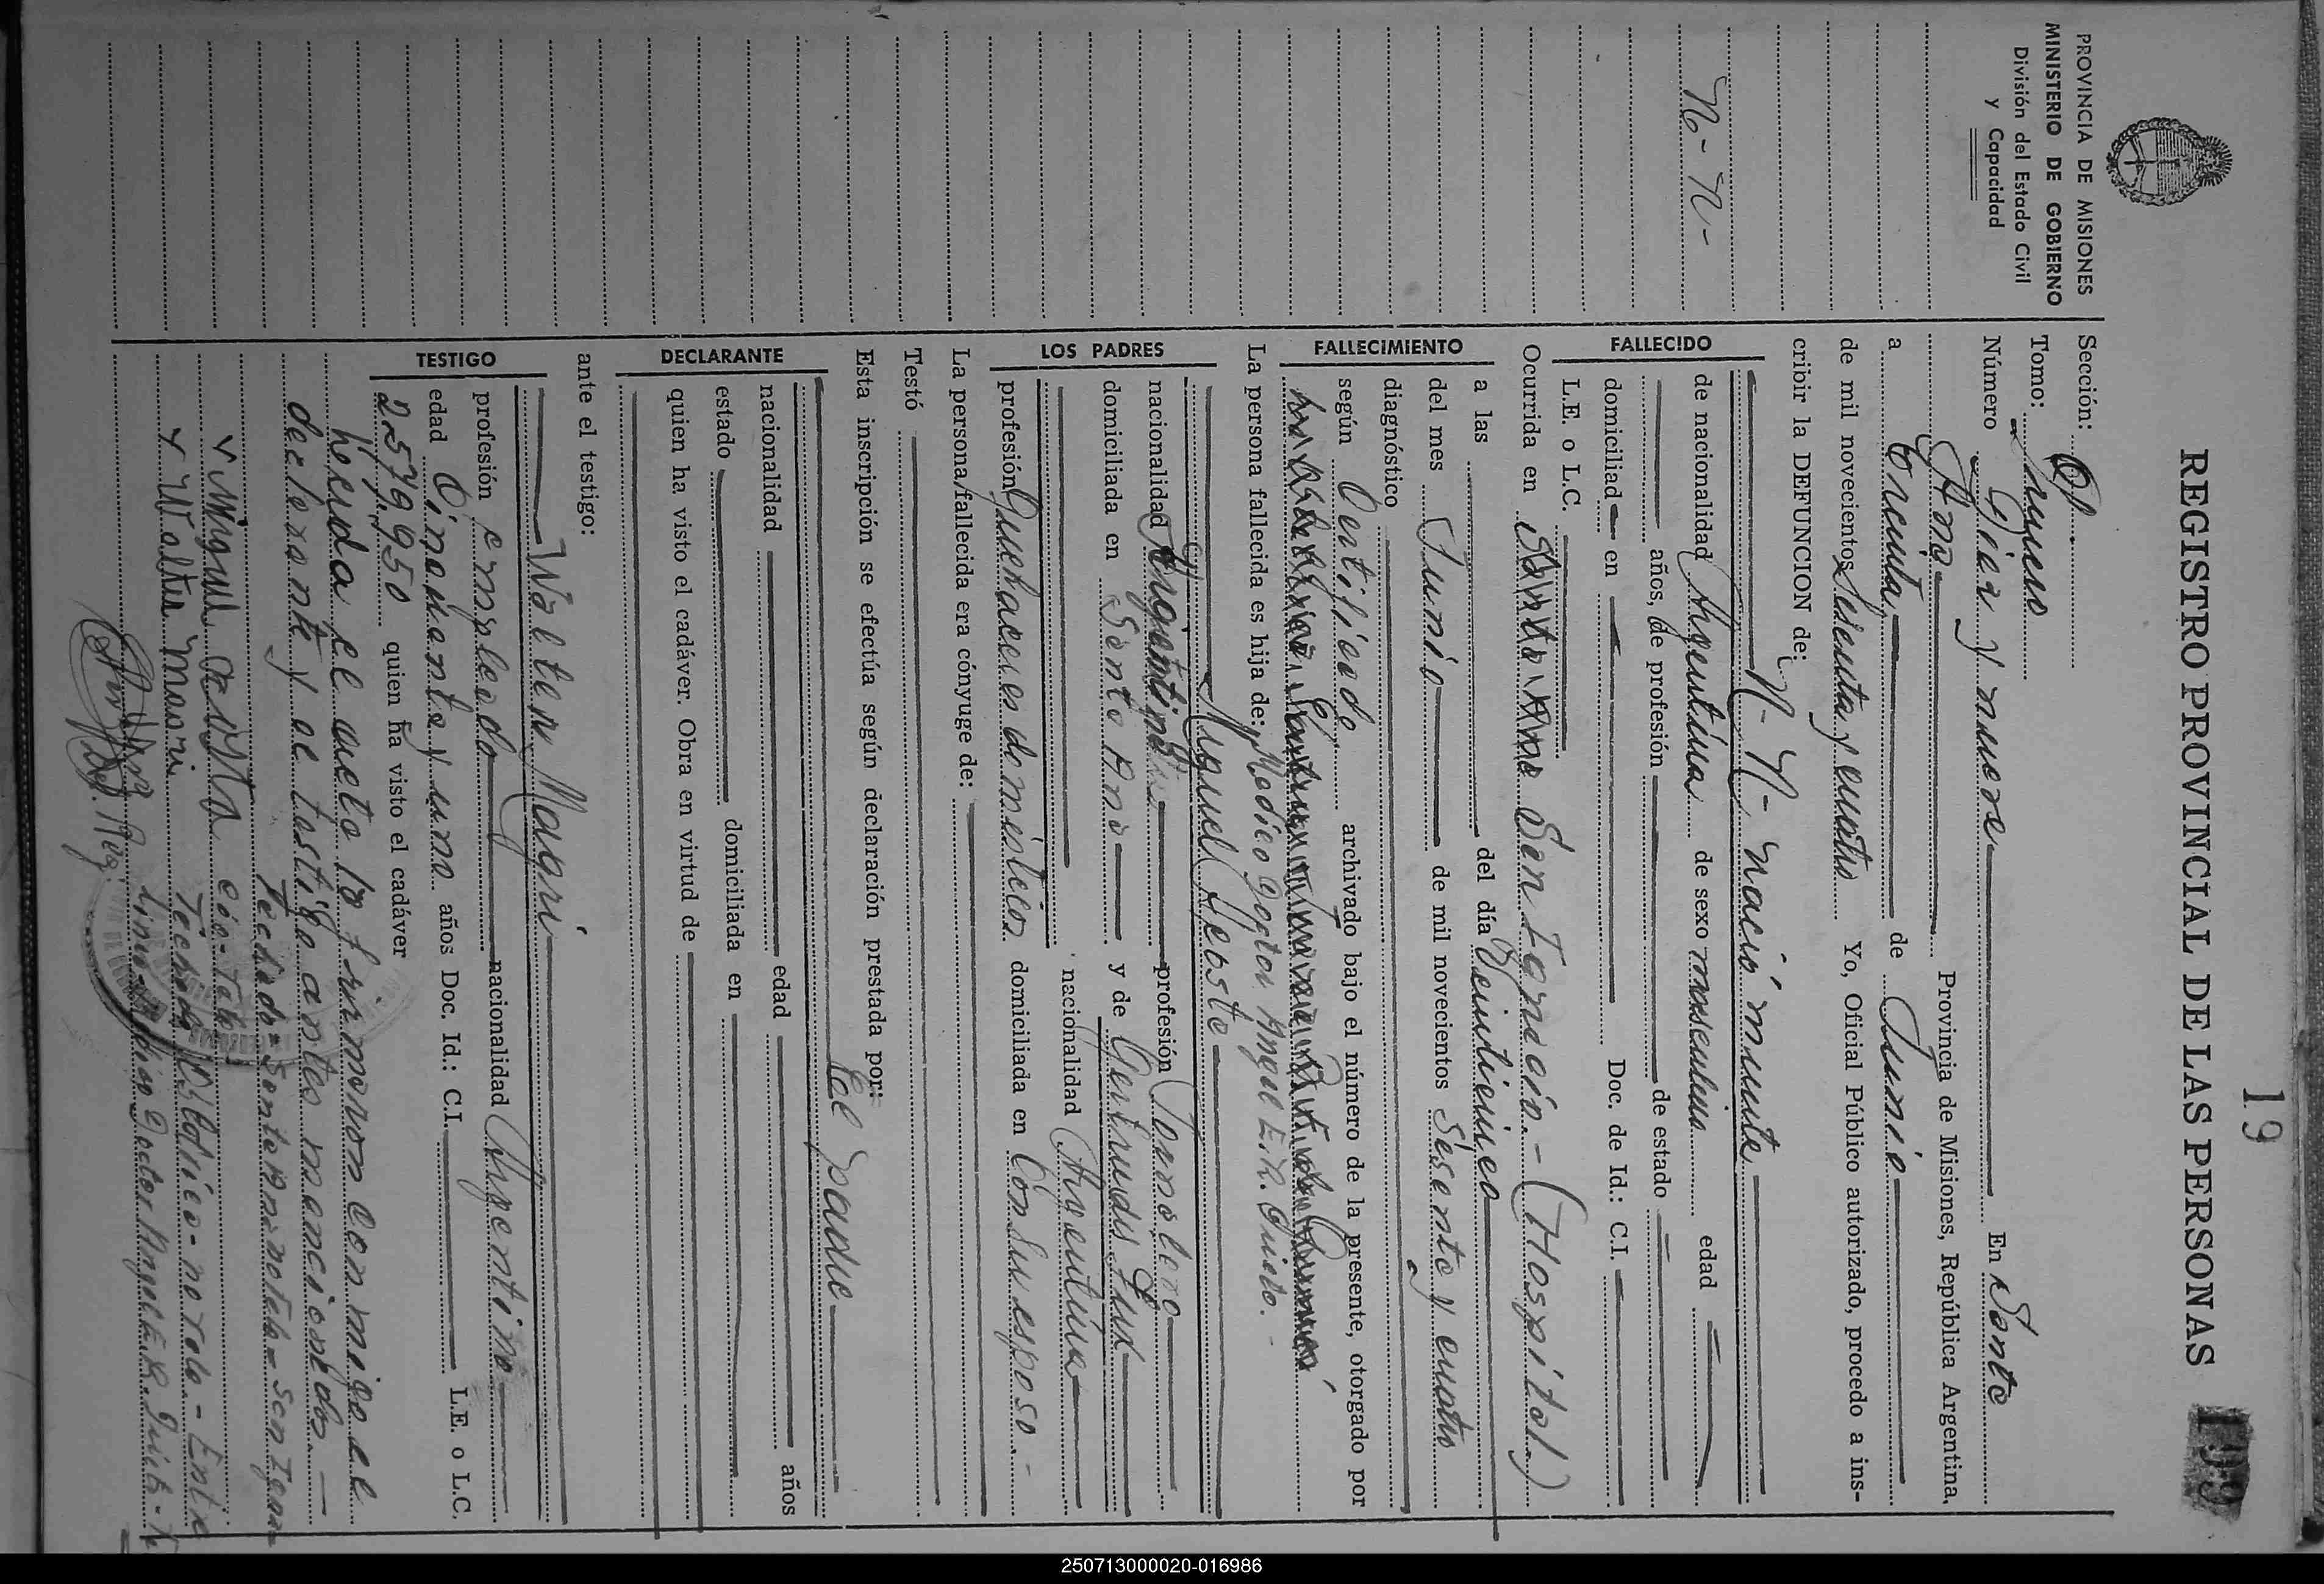 19
REGISTRO PROVINCIAL DE LAS PERSONAS
199
PROVINCIA DE MISIONES
MINISTERIO DE GOBIERNO
División del Estado Civil
y Capacidad
N-N-
Sección: 01
Tomo: Nuevo
Número Diez y nueve En Santa
Ana Provincia de Misiones, República Argentina,
a treinta de Junio
de mil novecientos sesenta y cuatro Yo, Oficial Público autorizado, procedo a ins-
cribir la DEFUNCION de:
N-N- nació muerte
FALLECIDO
de nacionalidad Argentina de sexo masculino edad
años, de profesión de estado
domiciliad en Doc. de Id.: C.I.
L.E. o L.C.
Ocurrida en San Ignacio.- (Hospital)
FALLECIMIENTO
a las del día Veinticinco
del mes Junio de mil novecientos sesenta y cuatro
diagnóstico
según Certificado archivado bajo el número de la presente, otorgado por
Médico Doctor Angel E.R. Guisto.-
La persona fallecida es hija de:
LOS PADRES
Miguel
nacionalidad Argentina profesión Jornalero
domiciliada en Santa Ana y de Gertrudis Lux
nacionalidad Argentina
profesión Quehaceres domésticos domiciliada en Con su esposo.-
La persona fallecida era cónyuge de:
Testó
Esta inscripción se efectúa según declaración prestada por:
El padre
DECLARANTE
nacionalidad edad años
estado domiciliada en
quien ha visto el cadáver. Obra en virtud de
ante el testigo:
Walter Magri
TESTIGO
profesión empleado nacionalidad Argentino
edad Cincuenta y uno años Doc. Id.: C.I. L.E. o L.C.
2579950 quien ha visto el cadáver
Leida el acta la firmaron conmigo el
declarante y el testigo antes mencionados.-
Testado = Santa Ana no vale = San Ignacio
Miguel
Testado no vale - Entre
Walter Magri
lineas Médico Doctor Angel E.R.
250713000020-016986